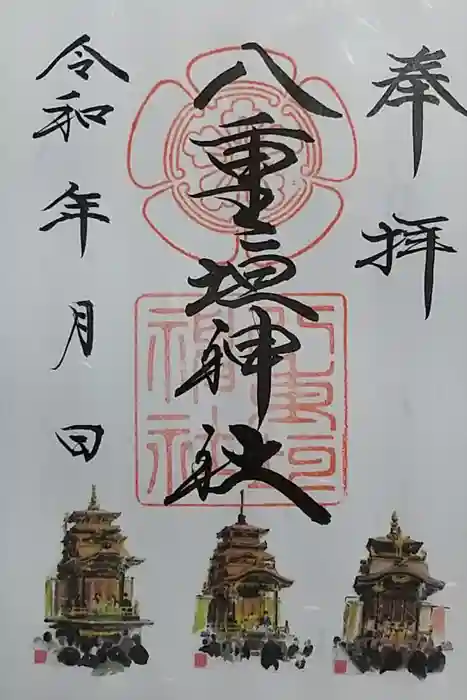 奉拝
八重垣神社
令和 年 月 日
八重垣
神社